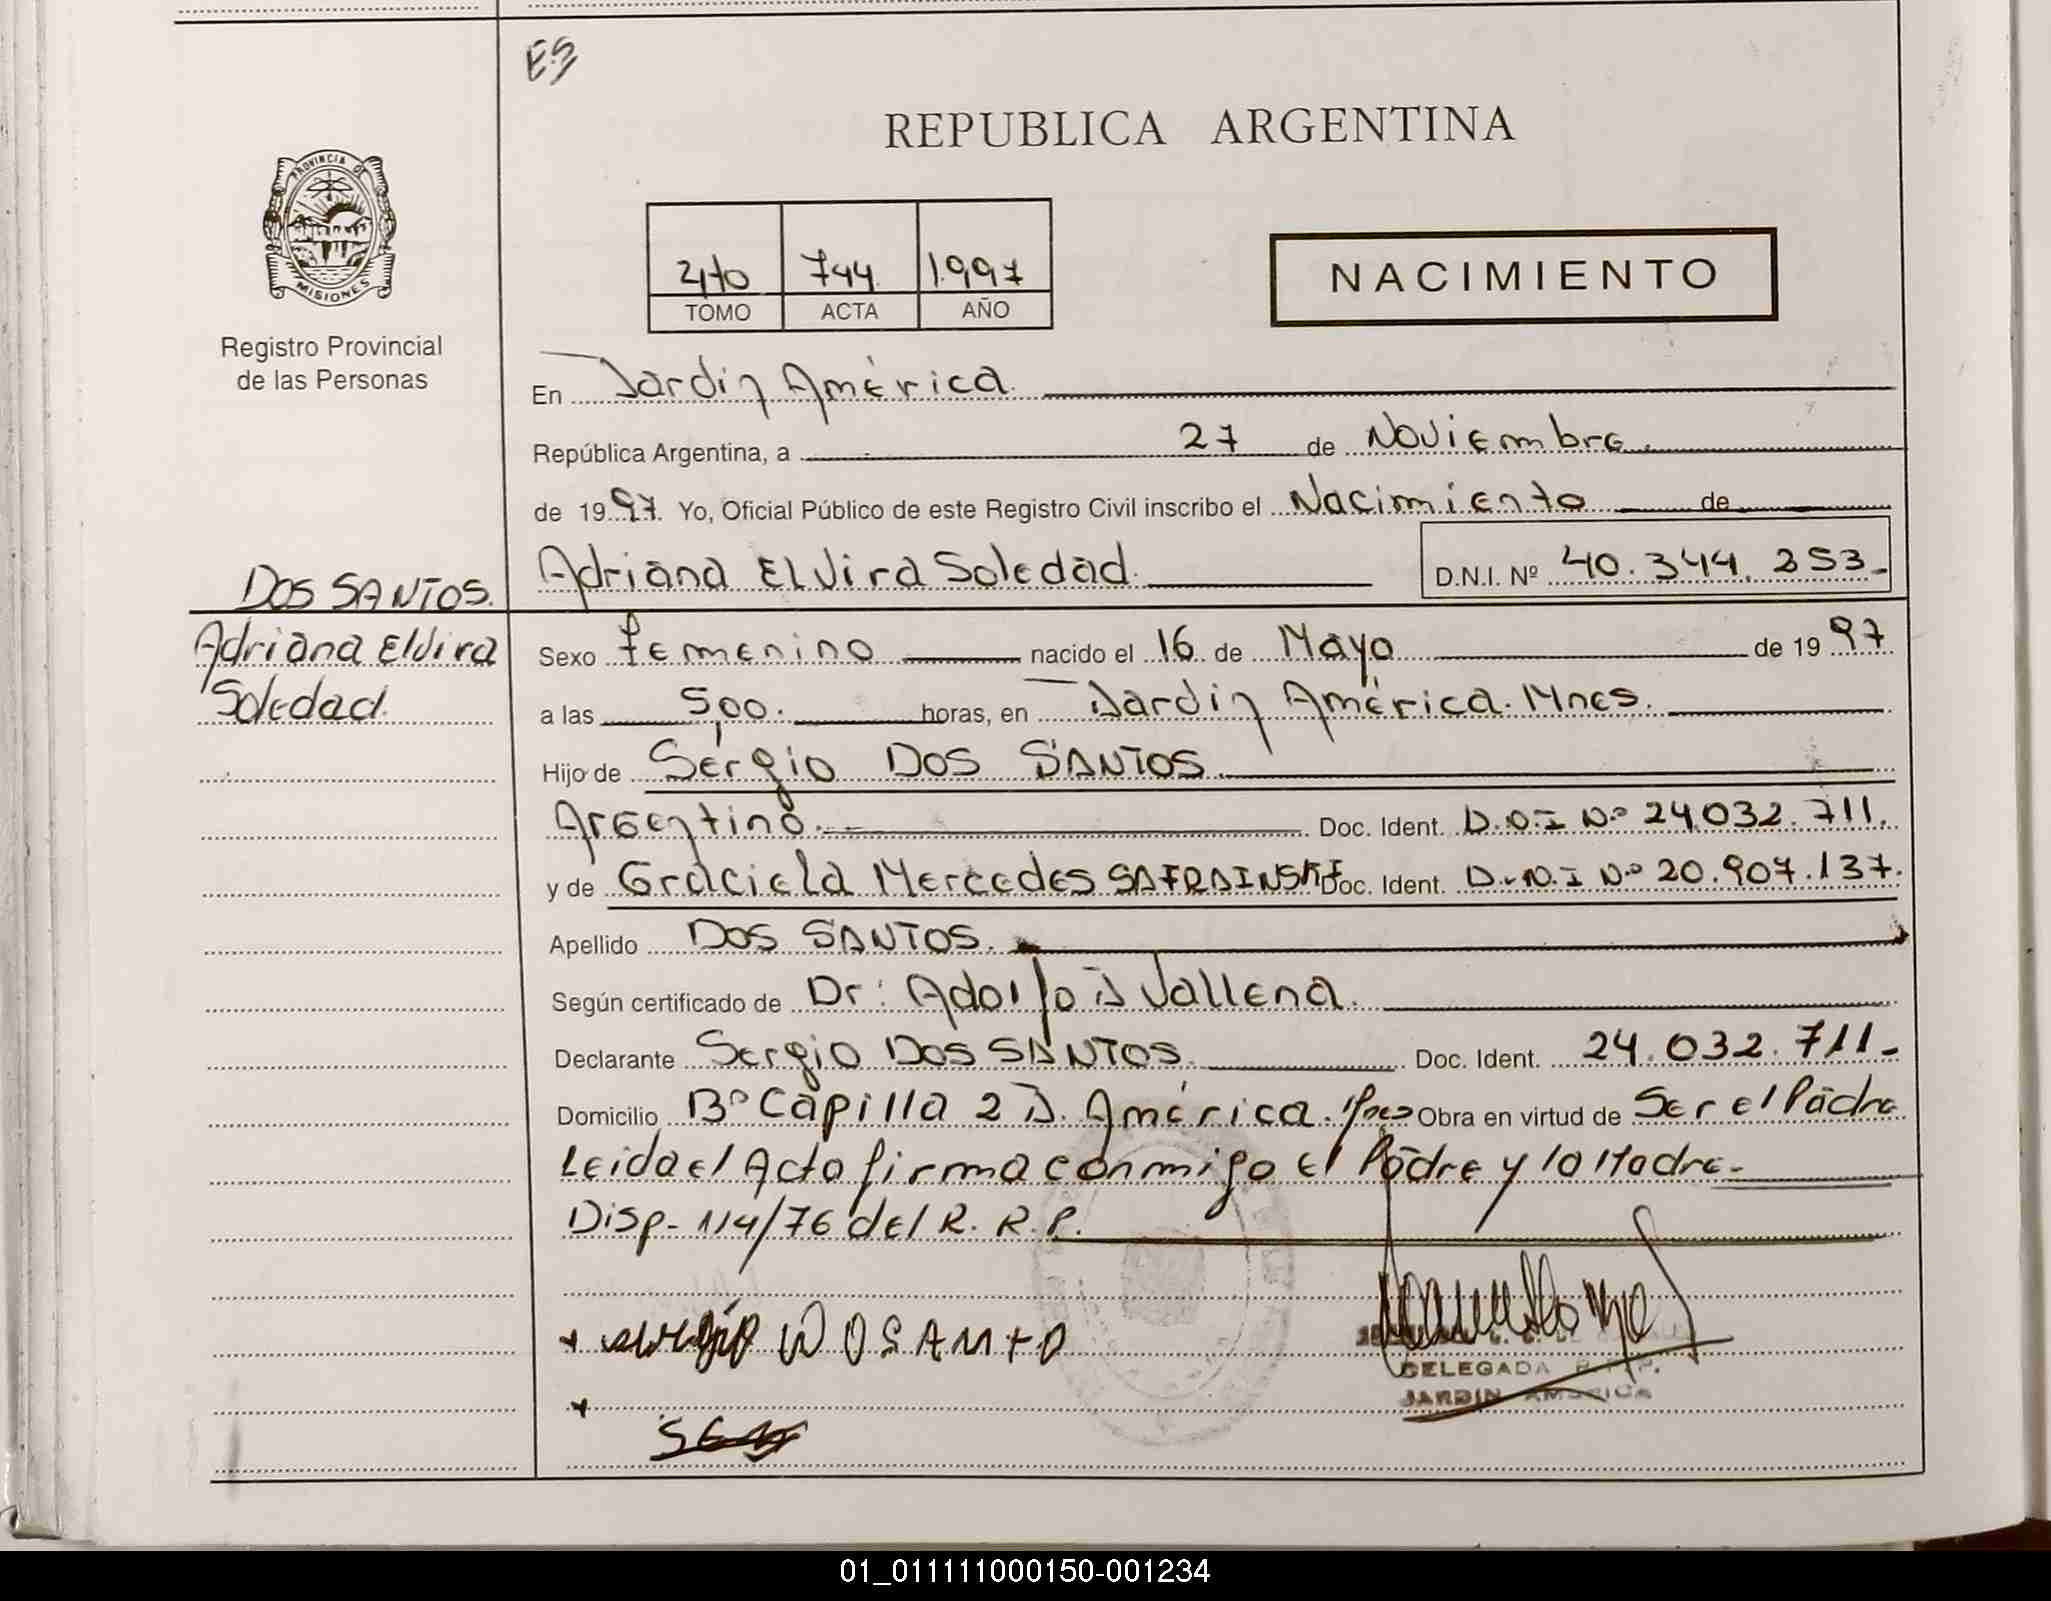 ES
REPUBLICA ARGENTINA
PROVINCIA DE
MISIONES
Registro Provincial
de las Personas
2470 744 1.997
TOMO ACTA AÑO
NACIMIENTO
En Jardin América.
República Argentina, a 27 de Noviembre.
de 1997. Yo, Oficial Público de este Registro Civil inscribo el Nacimiento de
Adriana Elvira Soledad. D.N.I. Nº 40.344.253-
DOS SANTOS.
Adriana Elvira
Soledad.
Sexo femenino nacido el 16 de Mayo de 1997
a las 5,00. horas, en Jardin América. Mnes.
Hijo de Sergio DOS SANTOS.
Argentino. Doc. Ident. D.N.I Nº 24.032.711.
y de Graciela Mercedes SAFRAINSKI Doc. Ident. D.N.I Nº 20.907.137.
Apellido DOS SANTOS.
Según certificado de Dr: Adolfo J Vallena.
Declarante Sergio DOS SANTOS. Doc. Ident. 24.032.711-
Domicilio Bº Capilla 2 J. América. Mnes Obra en virtud de Ser el Padre
Leida el Acta firma conmigo el Padre y la Madre-
Disp- 114/76 del R. R. P.
DELEGADA R.P.P.
JARDIN AMERICA
01_011111000150-001234